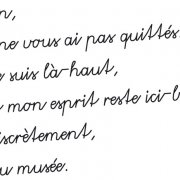 n,
ne vous ai pas quittés.
e suis là-haut,
mon esprit reste ici-b
iscrètement,
u musée.